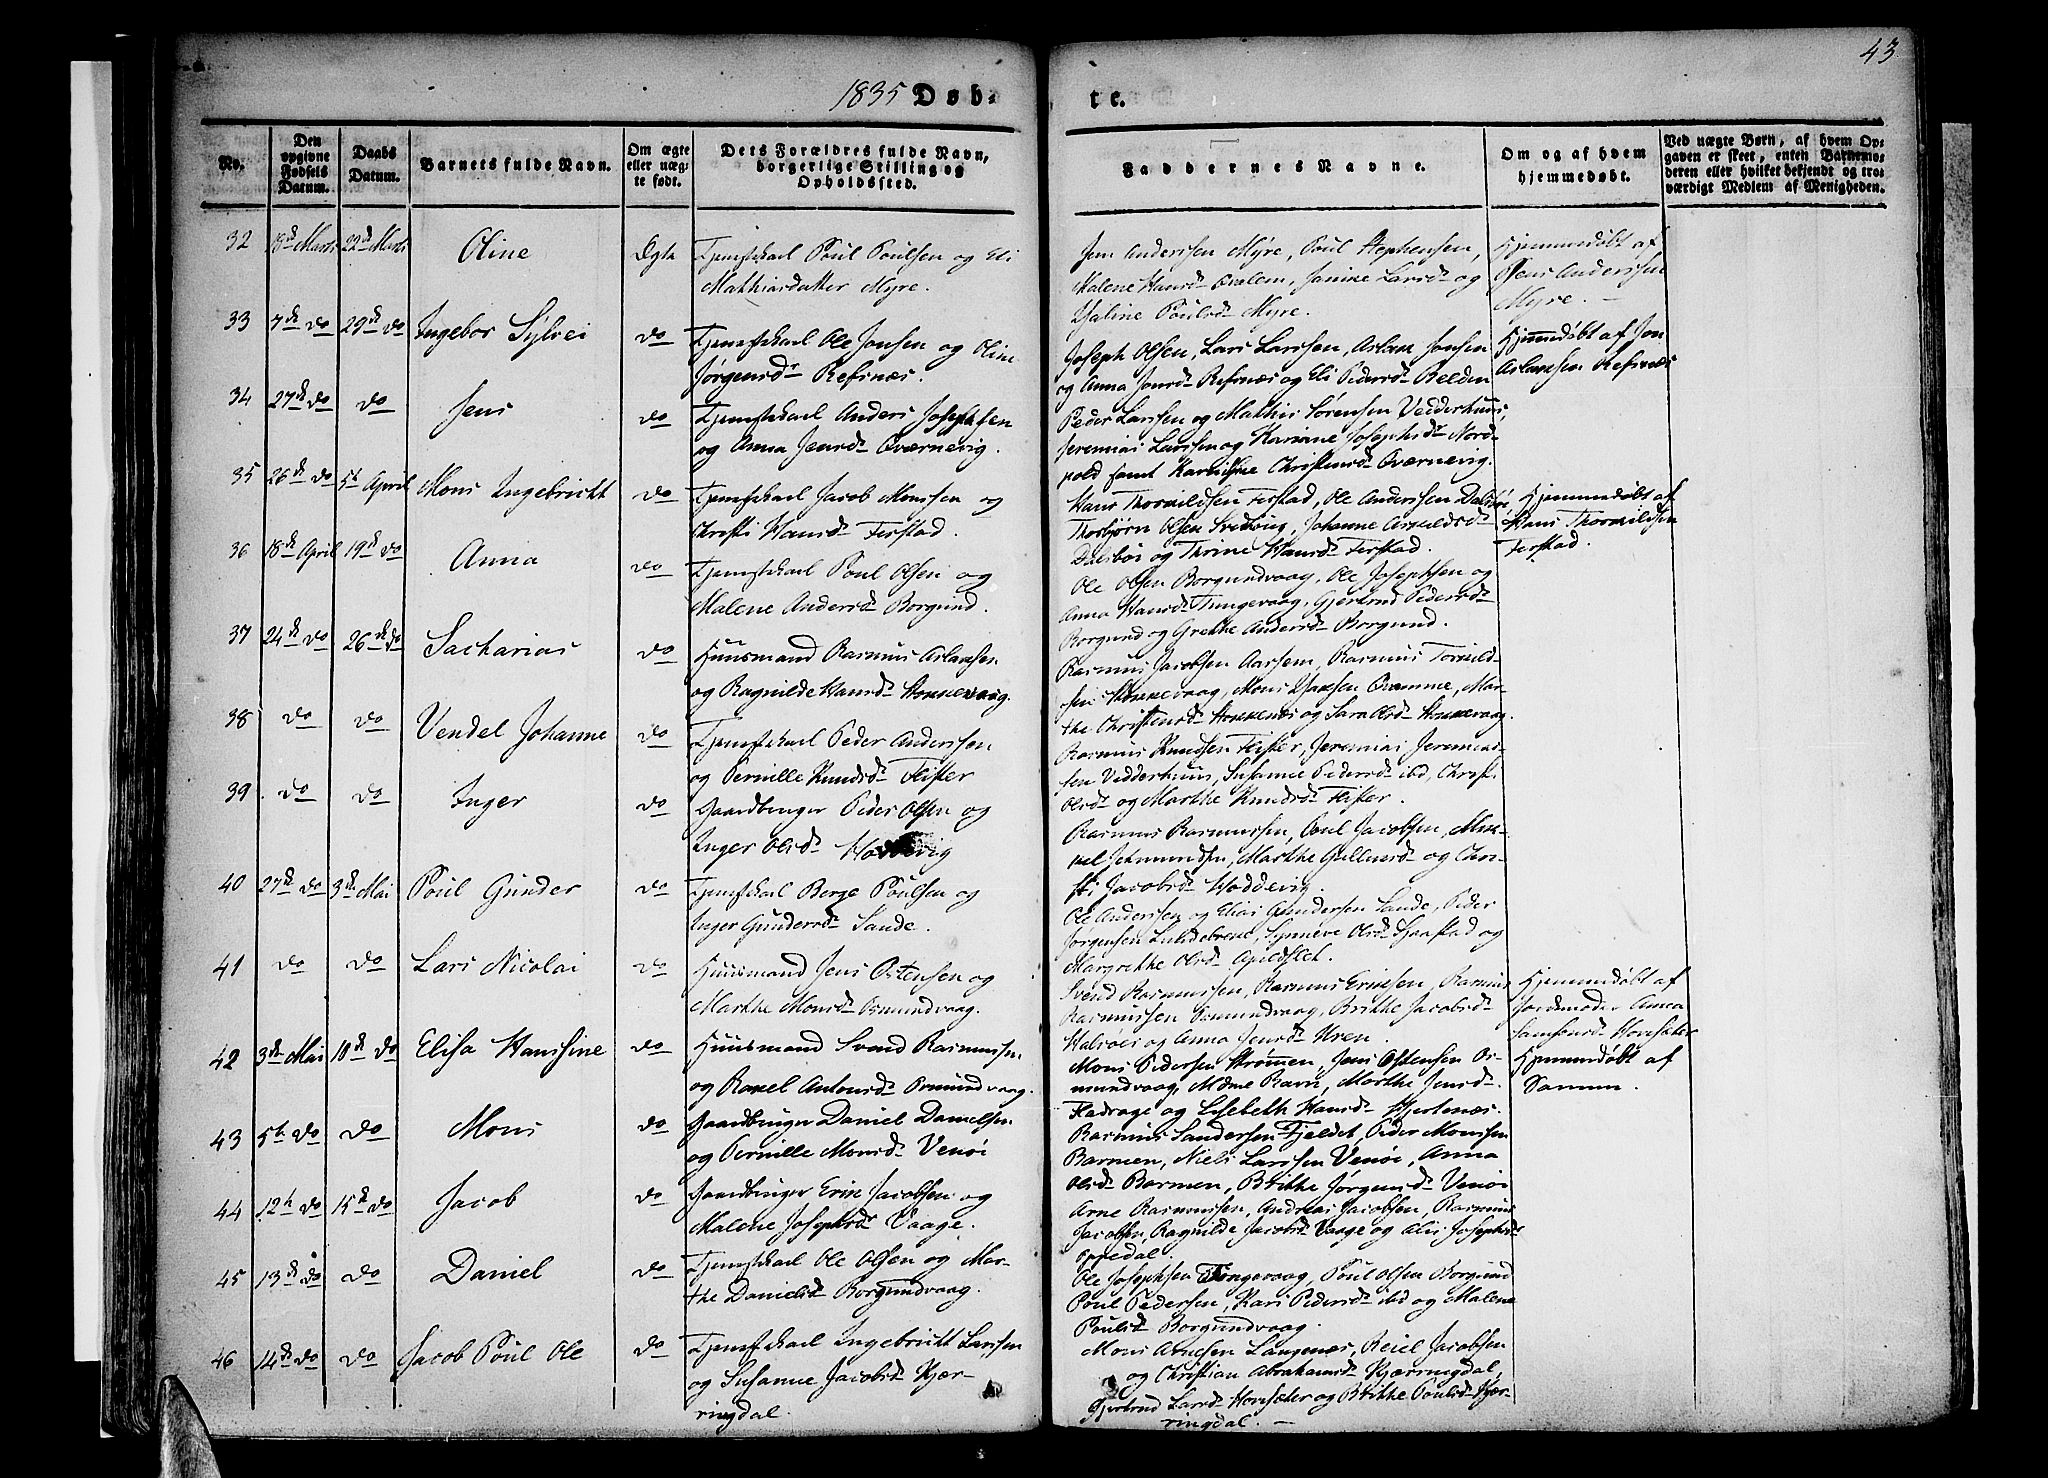 43
1835 Døb-
te.
No.
Den opgivne Fødsels Datum.
Daabs Datum.
Barnets fulde Navn.
Om ægte eller uægte født.
Dets Forældres fulde Navn, borgerlige Stilling og Opholdssted.
Faddernes Navne.
Om og af hvem hjemmedøbt.
Ved uægte Børn, af hvem Opgaven er skeet, enten Barnemoderen eller hvilket bekjendt og troværdigt Medlem af Menigheden.
32 18de Marts 22de Marts Oline Ægte Tjenestekarl Poul Poulsen og Eli
Mathiasdatter Myre.
Jens Anderssen Myre, Poul Stephensen,
Malene Hansd. Janine Larsd. og
Poulsd. Myre.
Hjemmedøbt af
Jens Anderssen
Myre.
33 7de do 29de do Ingebor Sylvei do Tjenestekarl Ole Jonsen og Oline
Jørgensd. Refsnæs.
Joseph Olsen, Lars Larssen, Aslak Jonsen
og Anna Jonsd. Refsnæs og Eli Pedersd. Belden
Hjemmedøbt af Jon
Aslaksen Refsnæs
34 27de do do Jens do Tjenestekarl Anders Josephsen
og Anna Jensd. Qværnevig.
Peder Larssen og Mathis Sørensen Vedderhuus,
Jeremias Larssen og Kariane Josephsd. Nord-
pold samt Christensd. Qværnevig.
35 26de do 5te April Mons Ingebrictt do Tjenestekarl Jacob Monssen og
Christi Hansd. Ferstad.
Hans Thormildsen Ferstad, Ole Anderssen Dalsbøe,
Thorbjørn Olsen Johanne
Dalsbøe og Thrine Hansd. Ferstad.
Hjemmedøbt af
Hans Thormildsen
Ferstad.
36 18de April 19de do Anna do Tjenestekarl Poul Olsen og
Malene Andersd. Borgund.
Ole Olsen Borgundvaag, Ole Josephsen og
Anna Hansd. Tungevaag, Gjertrud Pedersd.
Borgund og Grethe Andersd. Borgund.
37 24de do 26de do Sacharias do Huusmand Rasmus Aslaksen
og Ragnilde Hansd. Hokkevaag.
Rasmus Jacobsen Aarsem, Rasmus Tormild-
sen Hokkevaag, Mons Qvamme, Mar-
the Christensd. og Sara Olsd. Hokkevaag.
38 do do Vendel Johanne do Tjenestekarl Peder Anderssen
og Pernille Knudsd. Flister
Rasmus Knudsen Flister, Jeremias Jeremias-
sen Vedderhuus, Susanne Pedersd. ibd, Christi
Olsd. og Marthe Knudsd. Flister.
39 do do Inger do Gaardbruger Peder Olsen og
Inger Olsd. Hoddevig
Rasmus Rasmussen, Poul Jacobsen, Mik-
kel Marthe og Chri-
sti Jacobsd. Hoddevig.
40 27de do 3de Mai Poul Gunder do Tjenestekarl Berge Poulsen og
Inger Gundersd. Sande.
Ole Anderssen og Elias Gundersen Sande, Peder
Jørgensen Synneve Olsd. og
Margrethe Olsd. Apelsstet.
41 do do Lars Nicolai do Huusmand Jens Ostensen og
Marthe Monsd. Osmundvaag.
Svend Rasmussen, Rasmus Eriksen, Rasmus
Rasmussen Osmundvaag, Brithe Jacobsd.
Halsøer og Anna Jensd. Uren.
Hjemmedøbt af
Jordmoder Anna
Samsonsd. Hovesæter
42 3de Mai 10de do Elisa Hanssine do Huusmand Svend Rasmussen
og Rakel Antonsd. Osmundvaag.
Mons Pedersen Strømen, Jens Ostensen Os-
mundvaag, Mdme Ravn, Marthe Jensd.
Fladrage og Lisebeth Hansd. Hjertenæs.
Hjemmedøbt af
Samme.
43 5te do do Mons do Gaardbruger Daniel Danielsen
og Pernille Monsd. Venøe
Rasmus Sandersen Fjeldet, Peder Monssen
Barmen, Niels Larssen Venøe, Anna
Olsd. Barmen, Brithe Jørgensd. Venøe
44 12te do 15de do Jacob do Gaardbruger Erik Jacobsen og
Malene Josephsd. Vaage.
Arne Rasmussen, Andreas Jacobsen, Rasmus
Jacobsen, Ragnilde Jacobsd. Vaage og Alis Josephsd.
Oppedal.
45 13de do do Daniel do Tjenestekarl Ole Olsen og Mar-
the Danielsd. Borgundvaag.
Ole Josephsen Tungevaag, Poul Olsen Borgund
Poul Pedersen, Kari Pedersd. ibd og Malene
Poulsd. Borgundvaag.
46 14de do do Jacob Poul Ole do Tjenestekarl Ingebrictt Larssen
og Susanne Jacobsd. Kjær-
ringdal.
Mons Langenæs, Jacobsen
og Christian Abrahamsd. Kjærringdal,
Gjertrud Larsd. Hovesæter og Brithe Poulsd. Kjær-
ringdal.